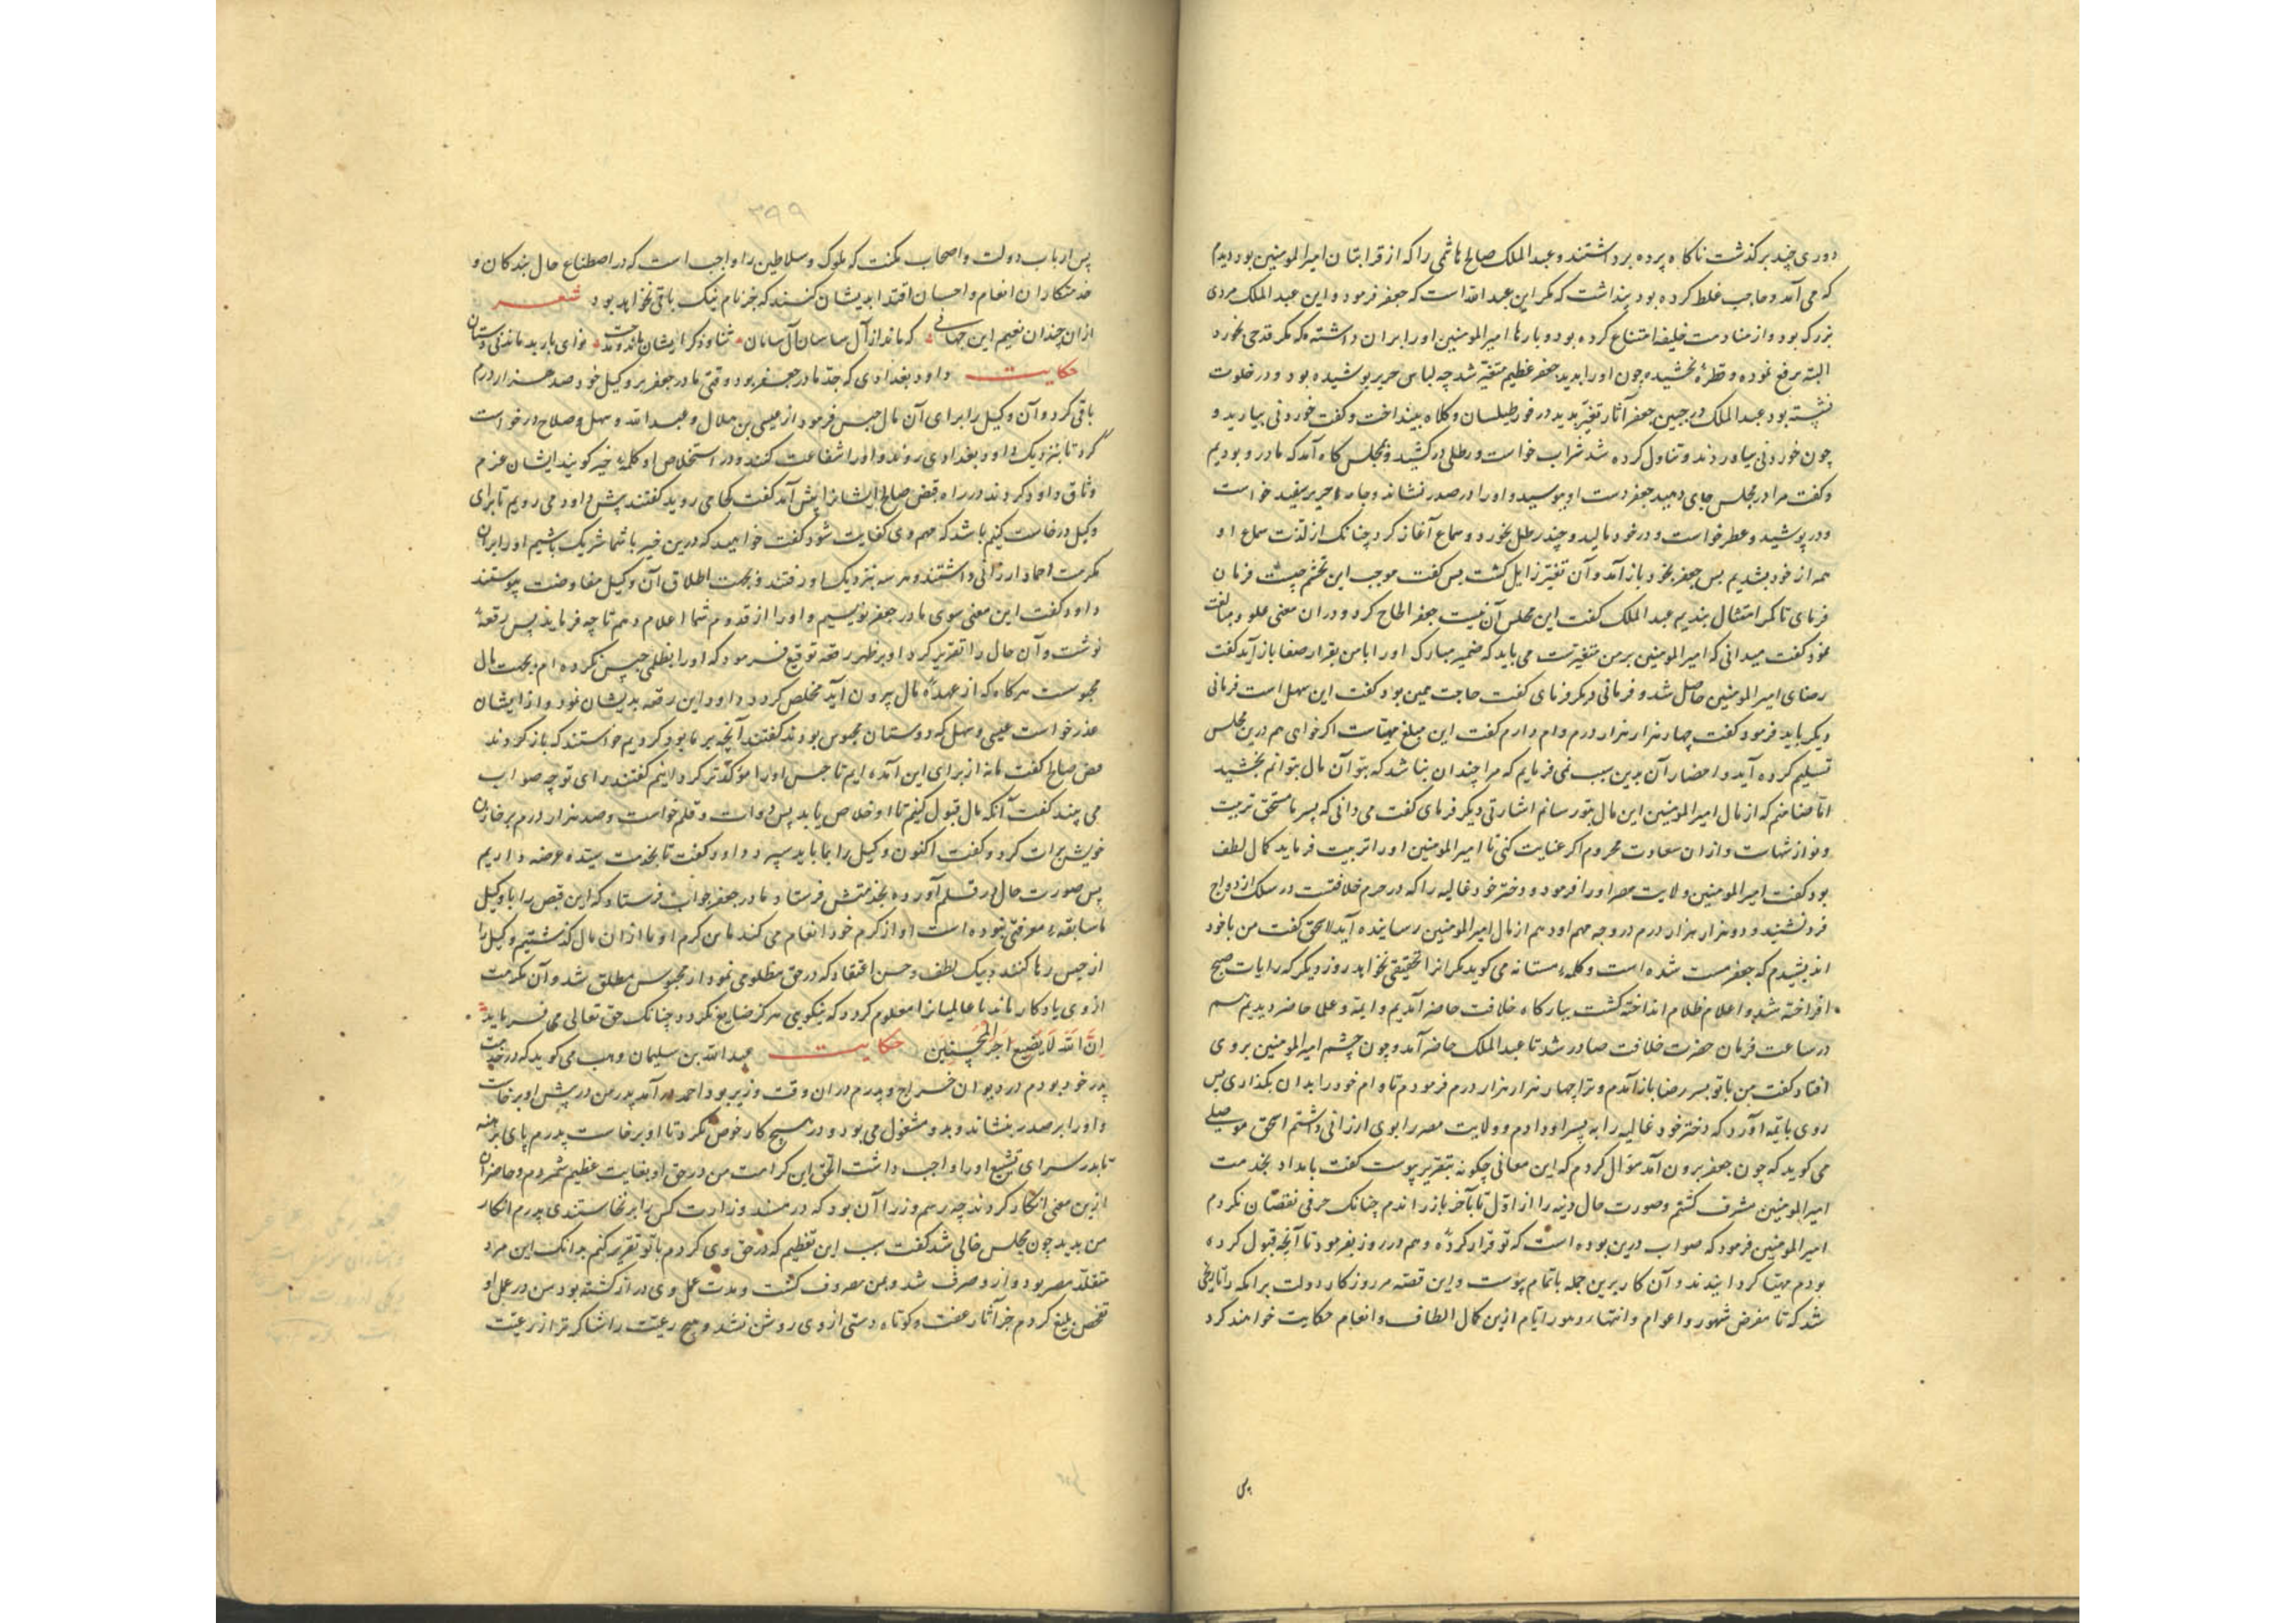 دوری چند برگذشت ناکاه پرده برداشتند و عبد الملک صالح هاشمی را که از قرابتان امیر المومنین بود دیدم
که می آمد و حاجب غلط کرده بود پنداشت که مکر این عبد الله است که جعفر فرمود و این عبد الملک مردی
بزرک بود و از منادمت خلیفه امتناع کرده بود و بارها امیر المومنین او را بران داشته که مکر قدحی بخورد
البته برفع نموده و قطرهٔ نچشیده چون او را بدید جعفر عظیم متغیر شد چه لباس حریر پوشیده بود و در خلوت
نشسته بود عبد الملک در جبین جعفر آثار تغیر بدید در فور طیلسان و کلاه بینداخت و کفت خوردنی بیارید و
چون خوردنی بیاوردند و تناول کرده شد شراب خواست و رطلی درکشید و بمجلس کاه آمد که ما درو بودیم
و کفت مرا در مجلس جای دهید جعفر دست او ببوسید و او را در صدر نشاند و جامهٔ حریر سفید خواست
و در پوشید و عطر خواست و در خود مالید و چند رطل بخورد و سماع آغاز کرد چنانک از لذت سماع او
همه از خود بشدیم پس جعفر بخود باز آمد و آن تغیر زایل کشت پس کفت موجب این تجشم چیست فرمان
فرمای تا کمر امتثال بندیم عبد الملک کفت این مجلس آن نیست جعفر الحاح کرد و دران معنی غلو و مبالغت
نمود کفت میدانی که امیر المومنین بر من متغیرست می باید که ضمیر مبارک او را با من بقرار صفا باز آید کفت
رضای امیر المومنین حاصل شد و فرمانی دیکر فرمای کفت حاجت همین بود کفت این سهل است فرمانی
دیکر باید فرمود کفت چهار هزار هزار درم وام دارم کفت این مبلغ مهیاست اکر خواهی هم درین مجلس
تسلیم کرده آید و احضار آن بدین سبب نمی فرمایم که مرا چندان نباشد که بتو آن مال بتوانم بخشید
اما ضامنم که از مال امیر المومنین این مال بتو رسانم اشارتی دیکر فرمای کفت می دانی که پسر ما مستحق تربیت
و نوازشهاست و ازان سعادت محروم اکر عنایت کنی تا امیر المومنین او را تربیت فرماید کمال لطف
بود کفت امیر المومنین ولایت مصر او را فرمود و دختر خود غالیه را که در حرم خلافتست در سلک ازدواج
فرزندت کشید و دو هزار هزار درم در وجه مهر او هم از مال امیر المومنین رسانیده آید اسحق کفت من با خود
اندیشیدم که جعفر مست شده است و کلمهٔ مستانه می کوید مکر انرا تحقیقی نخواهد روز دیکر که رایات صبح
افراخته شد و اعلام ظلام انداخته کشت ببارکاه خلافت حاضر آمدیم و ایمه و علی حاضر دیدیم هم
در ساعت فرمان حضرت خلافت صادر شد تا عبد الملک حاضر آمد و چون چشم امیر المومنین بروی
افتاد کفت من با تو بسر رضا باز آمدم و ترا چهار هزار هزار درم فرمودم تا وام خود را بدان بکذاری پس
روی بایمه آورد که دختر خود غالیه را به پسر او دادم و ولایت مصر را بوی ارزانی داشتم اسحق موصلی
می کوید که چون جعفر برون آمد سؤال کردم که این معانی چکونه بتقریر پیوست کفت بامداد بخدمت
امیر المومنین مشرف کشتم و صورت حال دینه را از اول تا بآخر باز راندم چنانک حرفی نقصان نکردم
امیر المومنین فرمود که صواب درین بوده است که تو قرار کردهٔ و هم در روز بفرمود تا آنچه قبول کرده
بودم مهیا کردانیدند و آن کار برین جمله باتمام پیوست و این قصه بر روز کار دولت برامکه را تاریخی
شد که تا مقرض شهور و اعوام و انتهاء دهور و ایام ازین کمال الطاف و انعام حکایت خواهند کرد
پس
۳۹۹
پس ارباب دولت و اصحاب مکنت که ملوک و سلاطین را واجب است که در اصطناع حال بندکان و
خدمتکاران انعام و احسان اقتدا بدیشان کنند که جز نام نیک باقی نخواهد بود شعر
ازان چندان نعیم این جهانی که ماند از آل ساسان آل سامان ثنا و ذکر ایشان ماند و مدحت نوای باربد ماندی و دستان
حکایت داود بغدادی که جد مادر جعفر بود وقتی مادر جعفر بر وکیل خود صد هزار درم
باقی کرد و آن وکیل را برای آن مال حبس فرمود از عیسی بن هلال و عبد الله و سهل و صلاح درخواست
کرد تا بنزدیک داود بغدادی روند و او را شفاعت کنند و در استخلاص او کلمهٔ خیر کویند ایشان عزم
وثاق داود کردند در راه فیض صالح ایشانرا پیش آمد کفت کجا می روید کفتند پیش داود می رویم تا برای
وکیل درخواست کنیم باشد که مهم وی کفایت شود کفت خواهید که درین خیر با شما شریک باشیم او را بران
مکرمت احماد ارزانی داشتند و هر سه بنزدیک او رفتند و بجهت اطلاق آن وکیل مفاوضت پیوستند
داود کفت این معنی سوی مادر جعفر نویسیم و او را از قدوم شما اعلام دهم تا چه فرماید پس رقعهٔ
نوشت و آن حال را تقریر کرد او بر ظهر رقعه توقیع فرمود که او را بظلمی حبس نکرده ام بجهت مال
محبوسست هر کاه که از عهدهٔ مال بیرون آید مخلص کردد داود این رقعه بدیشان نمود و از ایشان
عذر خواست عیسی و سهل که دوستان محبوس بودند کفتند آنچه بر ما بود کردیم خواستند که باز کردند
فیض صالح کفت ما نه از برای این آمده ایم تا حبس او را مؤکدتر کردانیم کفتند رای تو چه صواب
می بیند کفت آنکه مال قبول کنیم تا او خلاص یابد پس دوات و قلم خواست و صد هزار درم بر خازن
خویش برات کرد و کفت اکنون وکیل را بما باید سپرد داود کفت تا بخدمت سیده عرضه داریم
پس صورت حال در قلم آورده بخدمتش فرستاد مادر جعفر جواب فرستاد که این فیض را با وکیل
ما سابقهٔ معرفتی نبوده است او از کرم خود انعام می کند ما بدین کرم او ما ازان مال کذشتیم وکیل را
از حبس رها کنند و بیک لطف و حسن اعتقاد که در حق مظلومی نمود از محبوس مطلق شد و آن مکرمت
ازوی یادکار ماند تا عالمیانرا معلوم کردد که نیکویی هرکز ضایع نکردد چنانک حق تعالی می فرماید
اِنَّ اللّٰهَ لَا یُضِیعُ اَجْرَ الْمُحْسِنِینَ حکایت عبد الله بن سلیمان وهب می کوید که در خدمت
پدر خود بودم در دیوان خراج و پدرم دران وقت وزیر بود احمد در آمد پدر من در پیش او برخاست
و او را بر صدر بنشاند و بدو مشغول می بود و در هیچ کار خوض نکرد تا او برخاست پدرم پای برهنه
تا بدر سرای تشییع او را واجب داشت الحق این کرامت من در حق او بغایت عظیم شمردم و حاضران
ازین معنی انکار کردند چه رسم وزرا آن بود که در مسند وزارت کس را برنخاستندی پدرم انکار
من بدید چون مجلس خالی شد کفت سبب این تعظیم که در حق وی کردم با تو تقریر کنم بدانک این مرد
متقلد مصر بود و ازو صرف شد و بمن معروف کشت و مدت عمل وی دراز کشته بود من در عمل او
تفحص بلیغ کردم جز آثار عفت و کوتاه دستی ازوی روشن نشد و هیچ رعیت را شاکرتر از رعیت